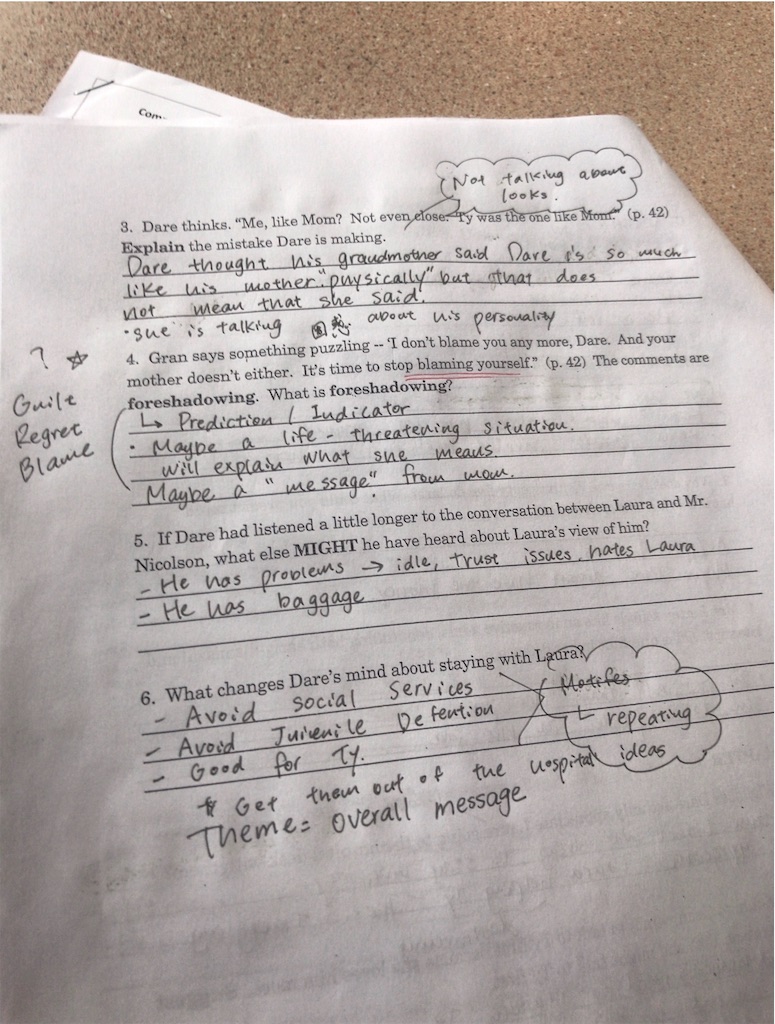 Com
Not talking about
looks.
3. Dare thinks. "Me, like Mom? Not even close. Ty was the one like Mom." (p. 42)
Explain the mistake Dare is making.
Dare thought his grandmother said Dare is so much
like his mother "physically" but that does
not mean that she said.
• She is talking about his personality
4. Gran says something puzzling -- "I don't blame you any more, Dare. And your
mother doesn't either. It's time to stop blaming yourself." (p. 42) The comments are
foreshadowing. What is foreshadowing?
?
Guilt
Regret
Blame
↳ Prediction / Indicator
• Maybe a life-threatening situation.
will explain what she means.
Maybe a "message" from mom.
5. If Dare had listened a little longer to the conversation between Laura and Mr.
Nicolson, what else MIGHT he have heard about Laura's view of him?
- He has problems → idle, trust issues, hates Laura
- He has baggage
6. What changes Dare's mind about staying with Laura?
- Avoid social Services
- Avoid Juvenile Detention
- Good for Ty.
Motifes
repeating
ideas
Get them out of the hospital
Theme= overall message